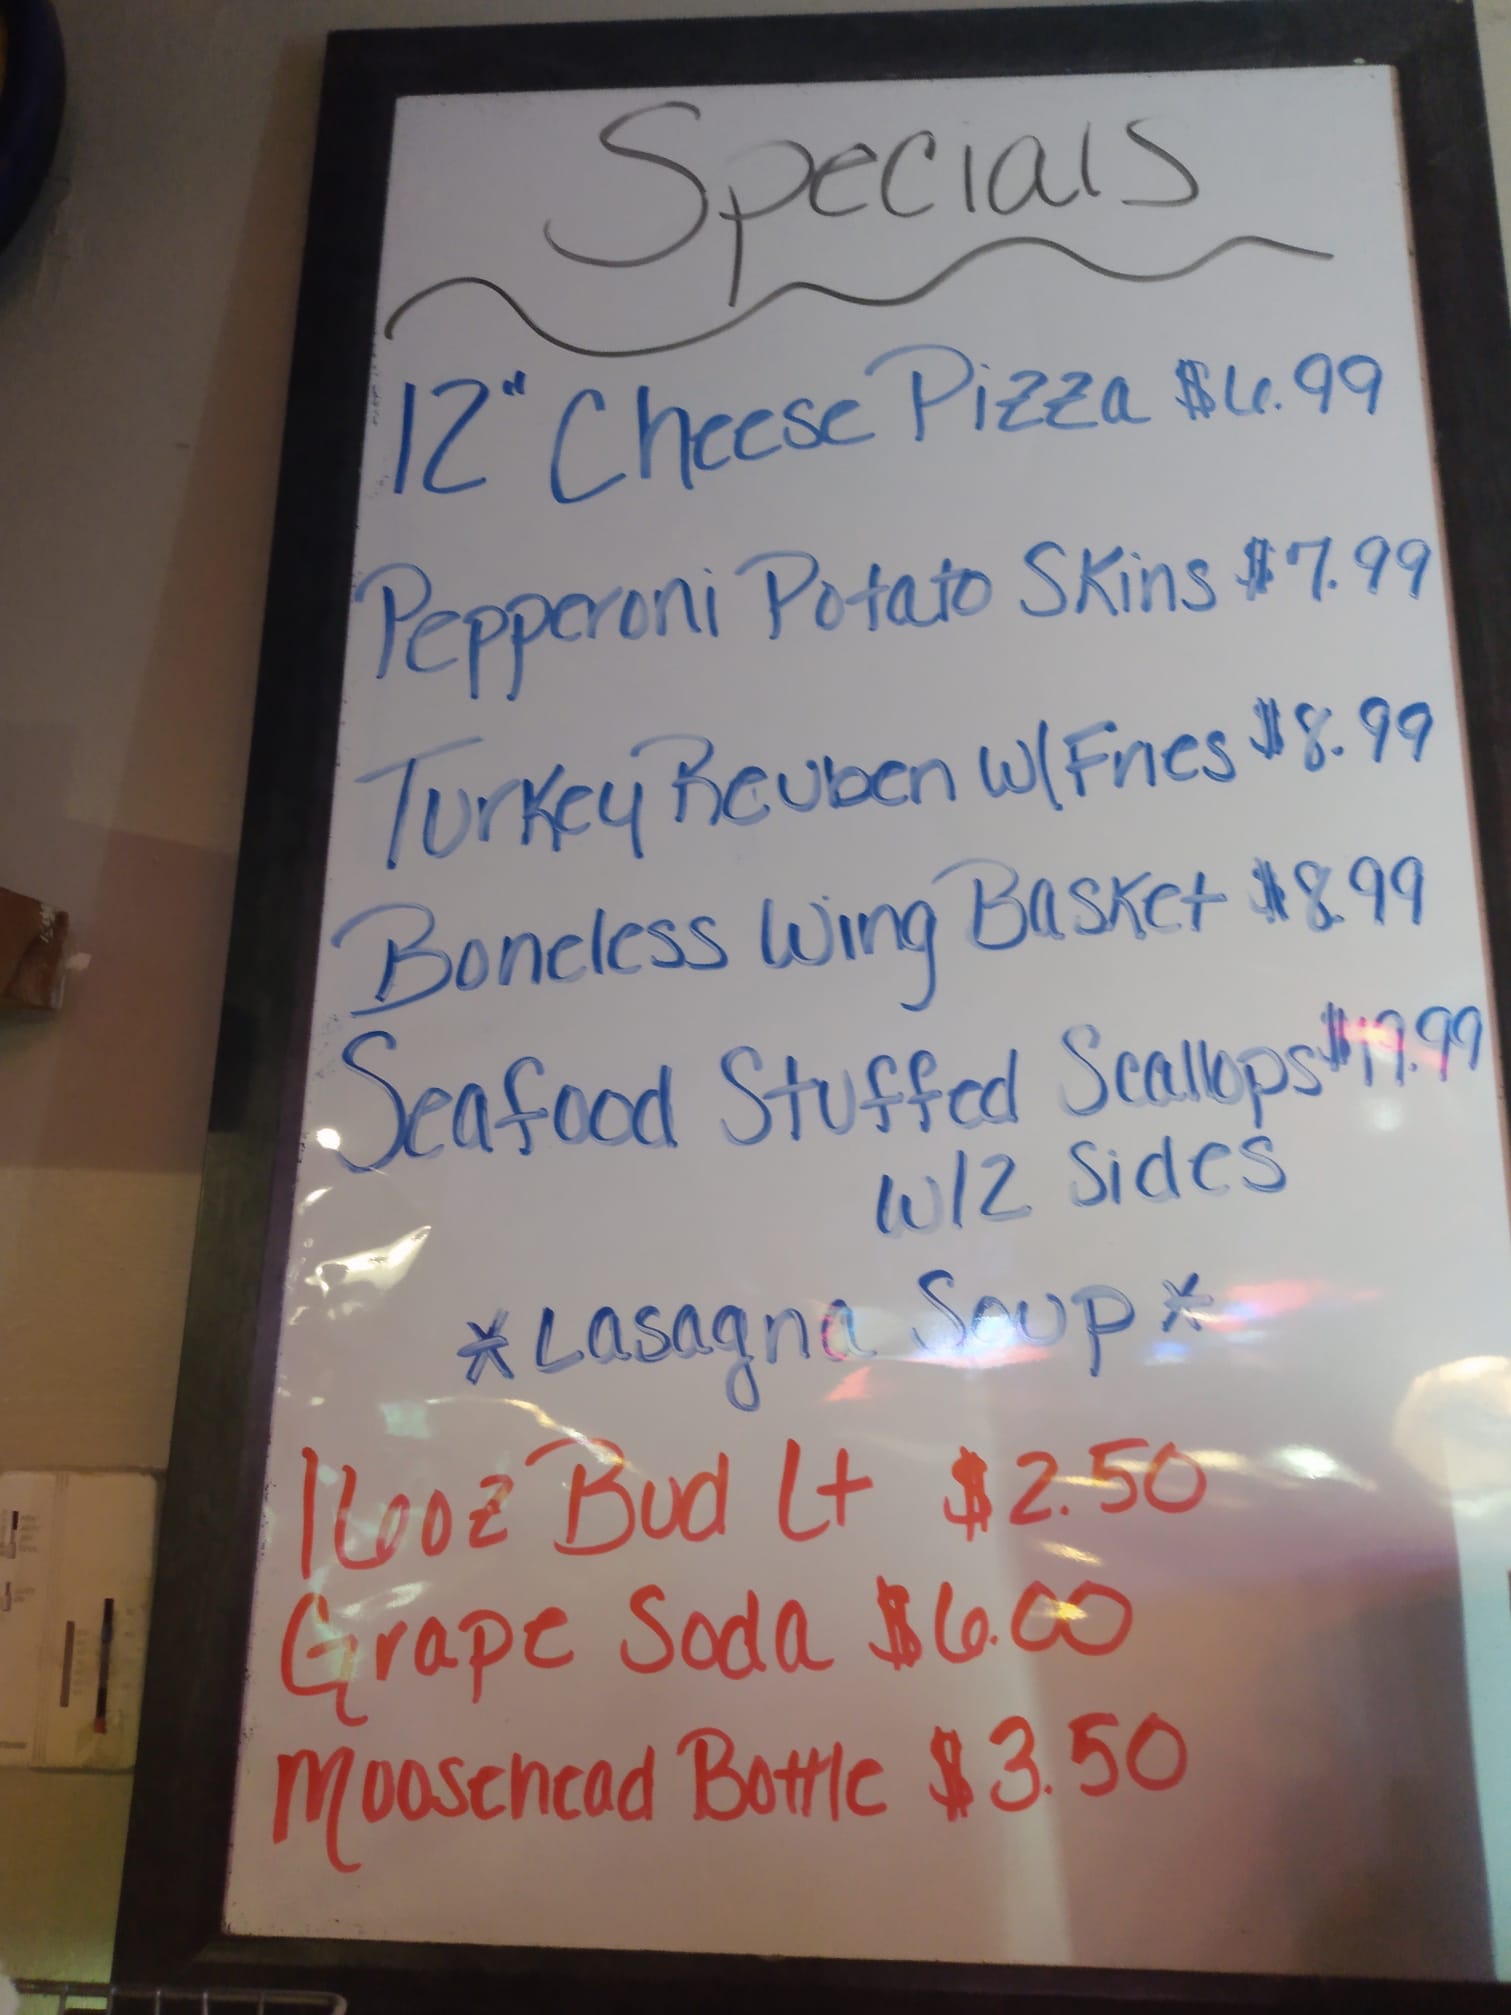 Specials
12" Cheese Pizza $6.99
Pepperoni Potato Skins $7.99
Turkey Reuben w/Fries $8.99
Boneless Wing Basket $8.99
Seafood Stuffed Scallops $19.99
w/2 Sides
*Lasagna Soup*
16ooz Bud Lt $2.50
Grape Soda $6.00
Moosehead Bottle $3.50